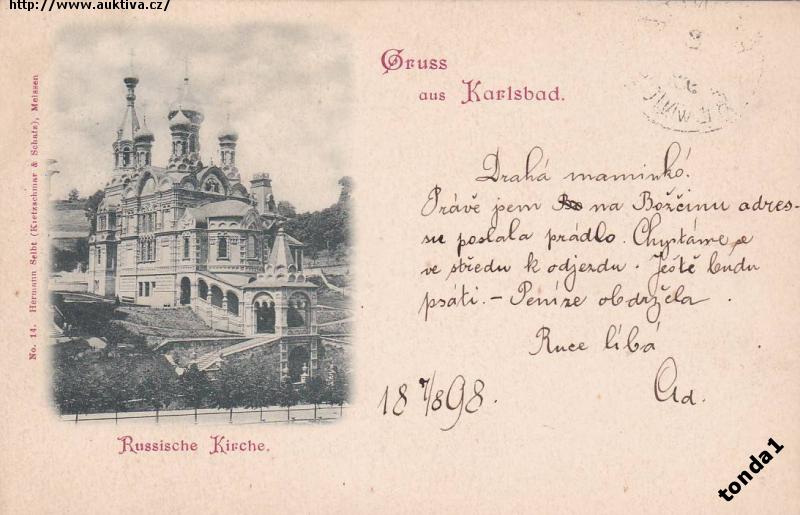 http://www.auktiva.cz/
Gruss
aus Karlsbad.
No. 14. Hermann Seibt (Kietzschmar & Schatz), Meissen
Drahá maminko!
Právě jsem na Božčinu adres-
su poslala prádlo. Chystáme se
ve středu k odjezdu. Ještě budu
psáti. – Peníze obdržela.
Ruce líbá
Ad.
18 7/8 98.
Russische Kirche.
tonda1